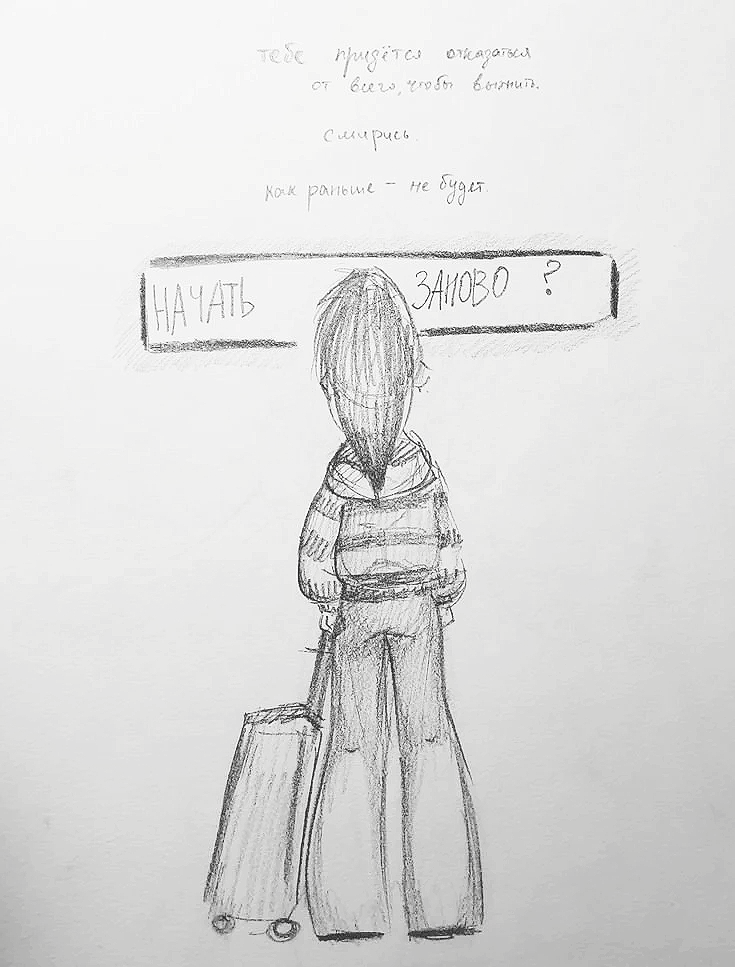 тебе придётся отказаться
от всего, чтобы выжить.
смирись.
как раньше – не будет.
НАЧАТЬ ЗАНОВО ?